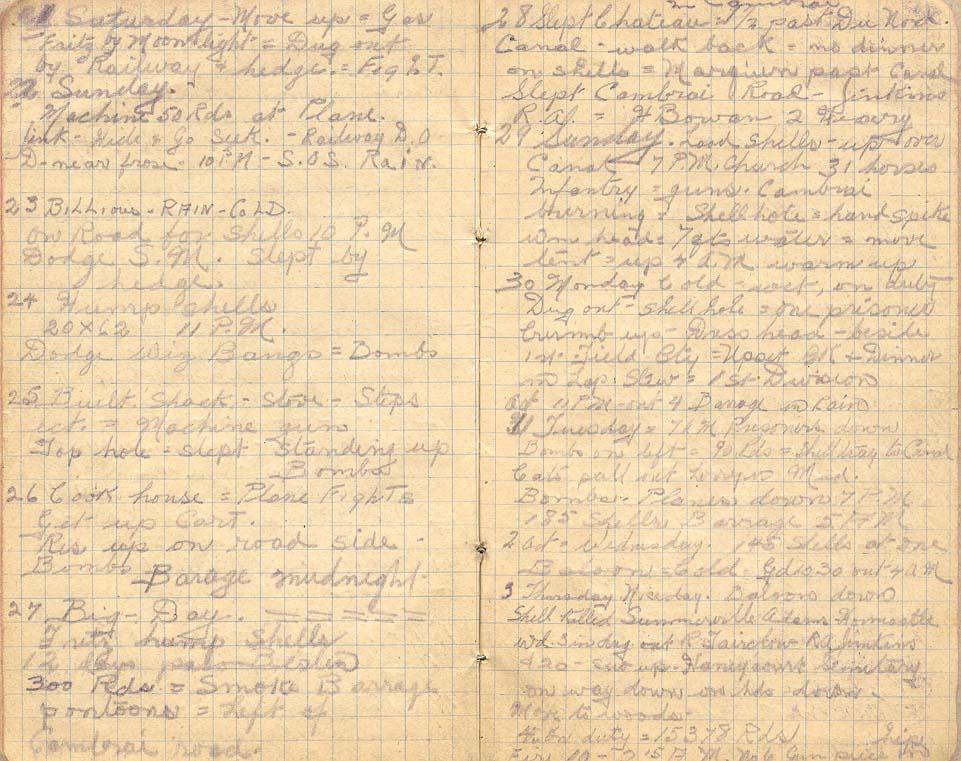 21 Saturday - Move up = Gas
Fritz by Moon light = Dug out
by Railway = hedge. = FighT.
22 Sunday.
Machine 50 Rds at Plane.
Hide & Go Seek. - Railway D.O
D- near frose - 10 P.M - S.O.S. Rain.
23 Billious - RAIN - COLD.
on Road for Shells 10 P.M
Dodge S.M. Slept by
hedge.
24 Hump Shells
20X62 11 P.M.
Dodge Wiz Bangs = Bombs
25 Built Shack - Stove - Steps
ect. = Machine gun
Top hole = slept Standing up
Bombs
26 Cook house = Plane Fights
Get up Cart.
Res up on road side -
Bombs Barage midnight
27 Big - Day. = = = = =
Fritz hump Shells
12 days
300 Rds = Smoke Barrage
pontoons = Left of
Cambrai road.
28 Slept Chateau = 1/2 past Du Nord.
Canal - walk back = no dinner
on shells = past Canal
Slept Cambrai Road - Jenkins
R.A. = Bowan 2
29 Sunday. Load Shells - up over
Canal 7 P.M. Church 31 horses
Infantry = guns. Cambrai
burning = Shell hole = hand spike
head = 7 water = move
tent = up 4 A.M warm up
30 Monday Cold - wet, on duty
Dug out - shell hole = one prisoner
up - Dress head - beside
1st Field = Upset & Dinner
in Lap. Stew = 1st Division
Oct 11 P.M - out 4 Barage in Rain
1 Tuesday = 7 A.M Prisoners down
Bombs on left = 90 Rds = Shell to
Cats pull out Mud.
Bombs. Planes down 7 P.M
185 Shells Barrage 5 P M
2 Oct = Wednesday. 145 Shells at one
Baloon = Cold. out 4 A M
3 Thursday Nice day. Baloon down
Shell Killed Summerville Adams Horncastle
wd. out R. Fairclow RA Jenkins
on way down on down -
Move to woods -
duty = 15378 Rds